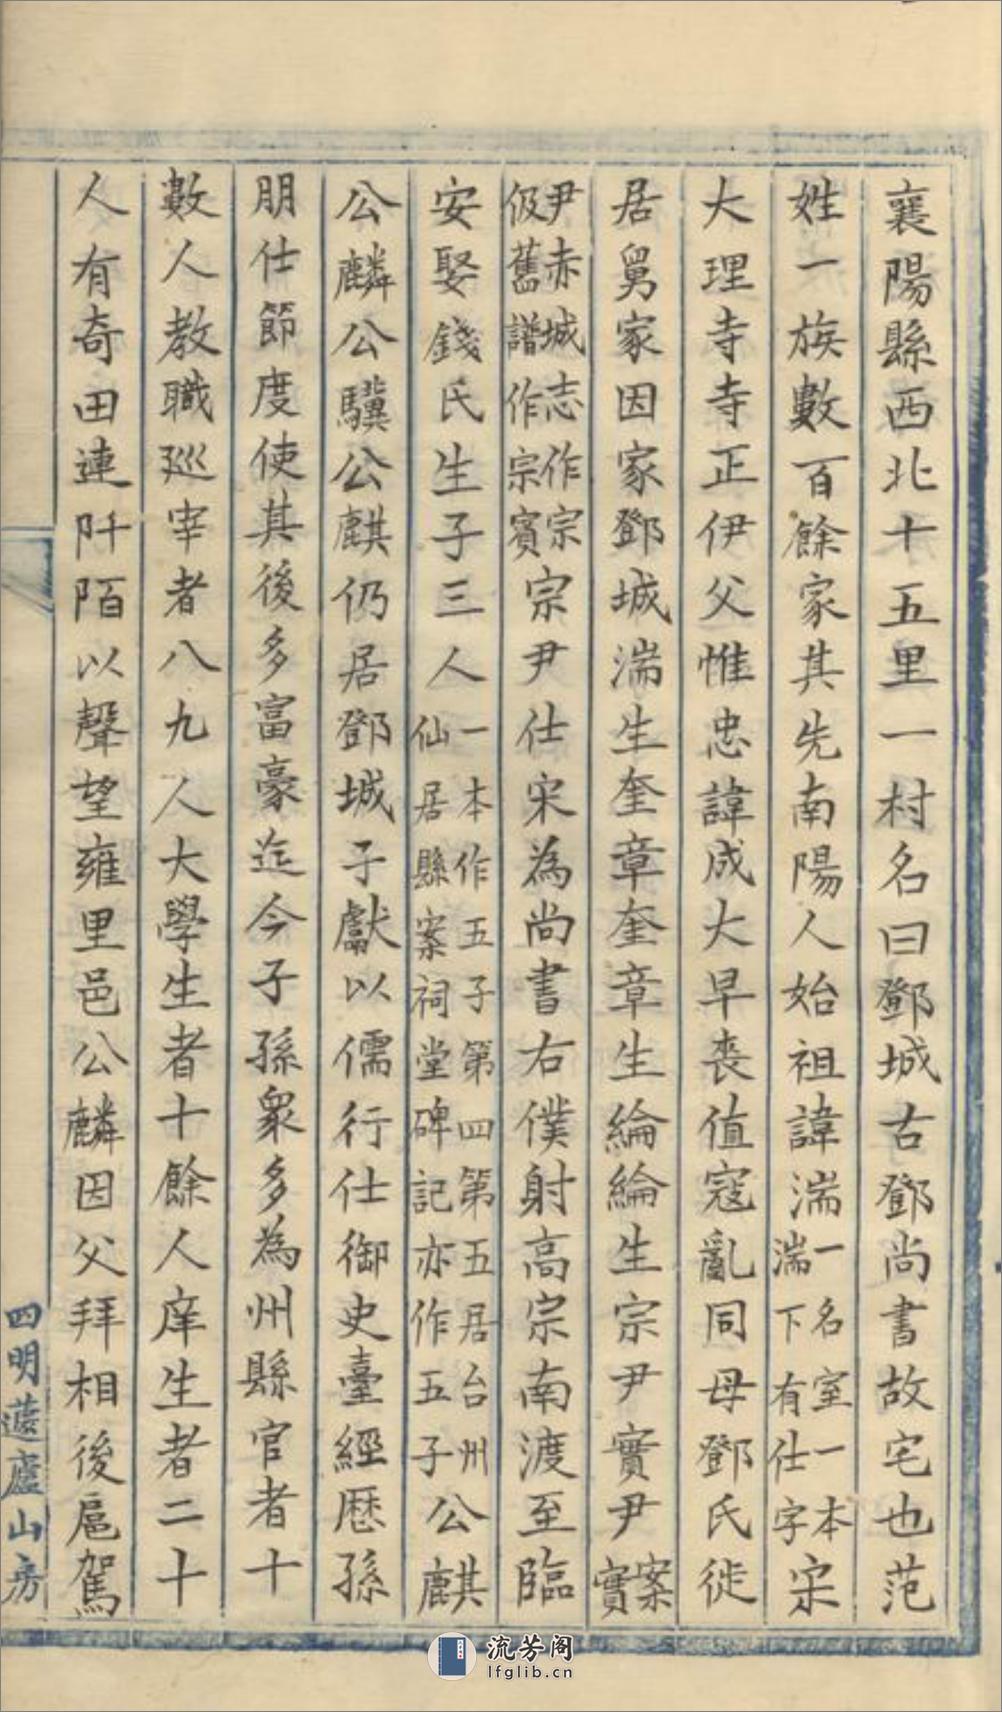 襄陽縣西北十五里一村名曰鄧城古鄧尚書故宅也范
姓一族數百餘家其先南陽人始祖諱湍一名室一本湍下有仕字宋
大理寺寺正伊父惟忠諱成大早喪值寇亂同母鄧氏徙
居舅家因家鄧城湍生奎章奎章生綸綸生宗尹實尹案實
尹赤城志作宗伋舊譜作宗賓宗尹仕宋為尚書右僕射高宗南渡至臨
安娶錢氏生子三人一本作五子第四第五居台州仙居縣案祠堂碑記亦作五子公麒
公麟公驥公麒仍居鄧城子獻以儒行仕御史臺經歷孫
朋仕節度使其後多富豪迄今子孫眾多為州縣官者十
數人教職巡宰者八九人大學生者十餘人庠生者二十
人有奇田連阡陌以聲望雍里邑公麟因父拜相後扈駕
四明蘧廬山房
流芳阁
lfglib.cn